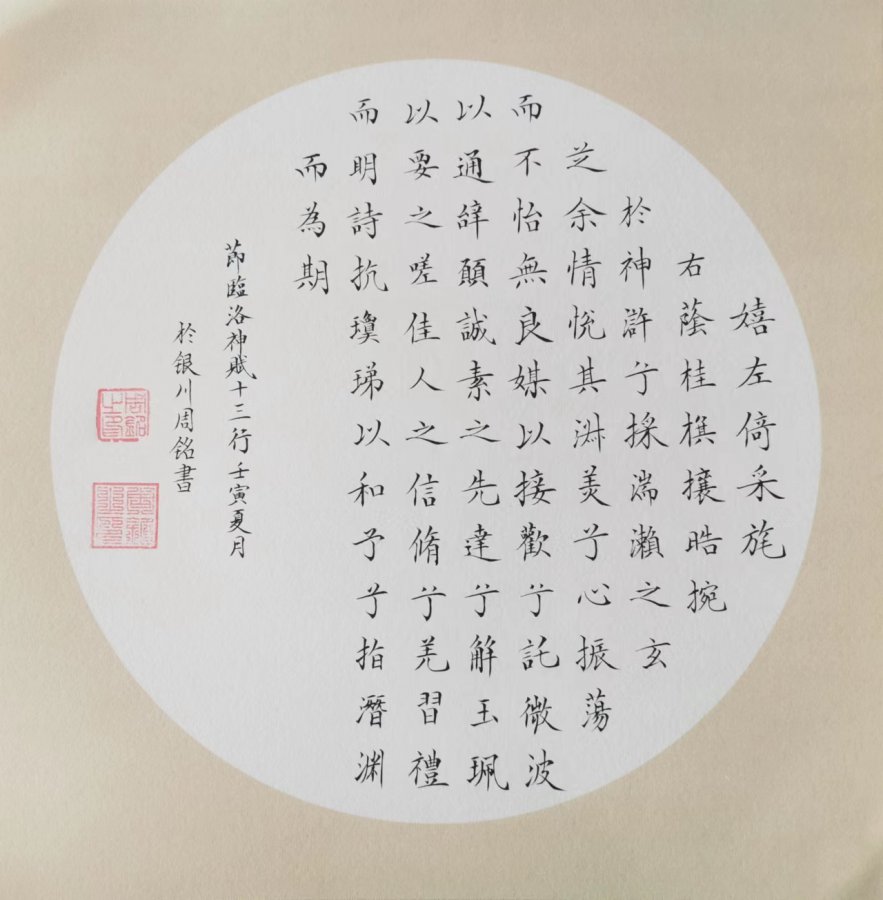 嬉左倚采旄
右蔭桂旗攘晧捥
於神滸兮採湍瀨之玄
芝余情悅其淑美兮心振蕩
而不怡無良媒以接歡兮託微波
以通辝願誠素之先達兮解玉珮
以要之嗟佳人之信脩兮羌習禮
而明詩抗瓊珶以和予兮指潛淵
而為期
節臨洛神賦十三行壬寅夏月
於银川周銘書
周銘之印